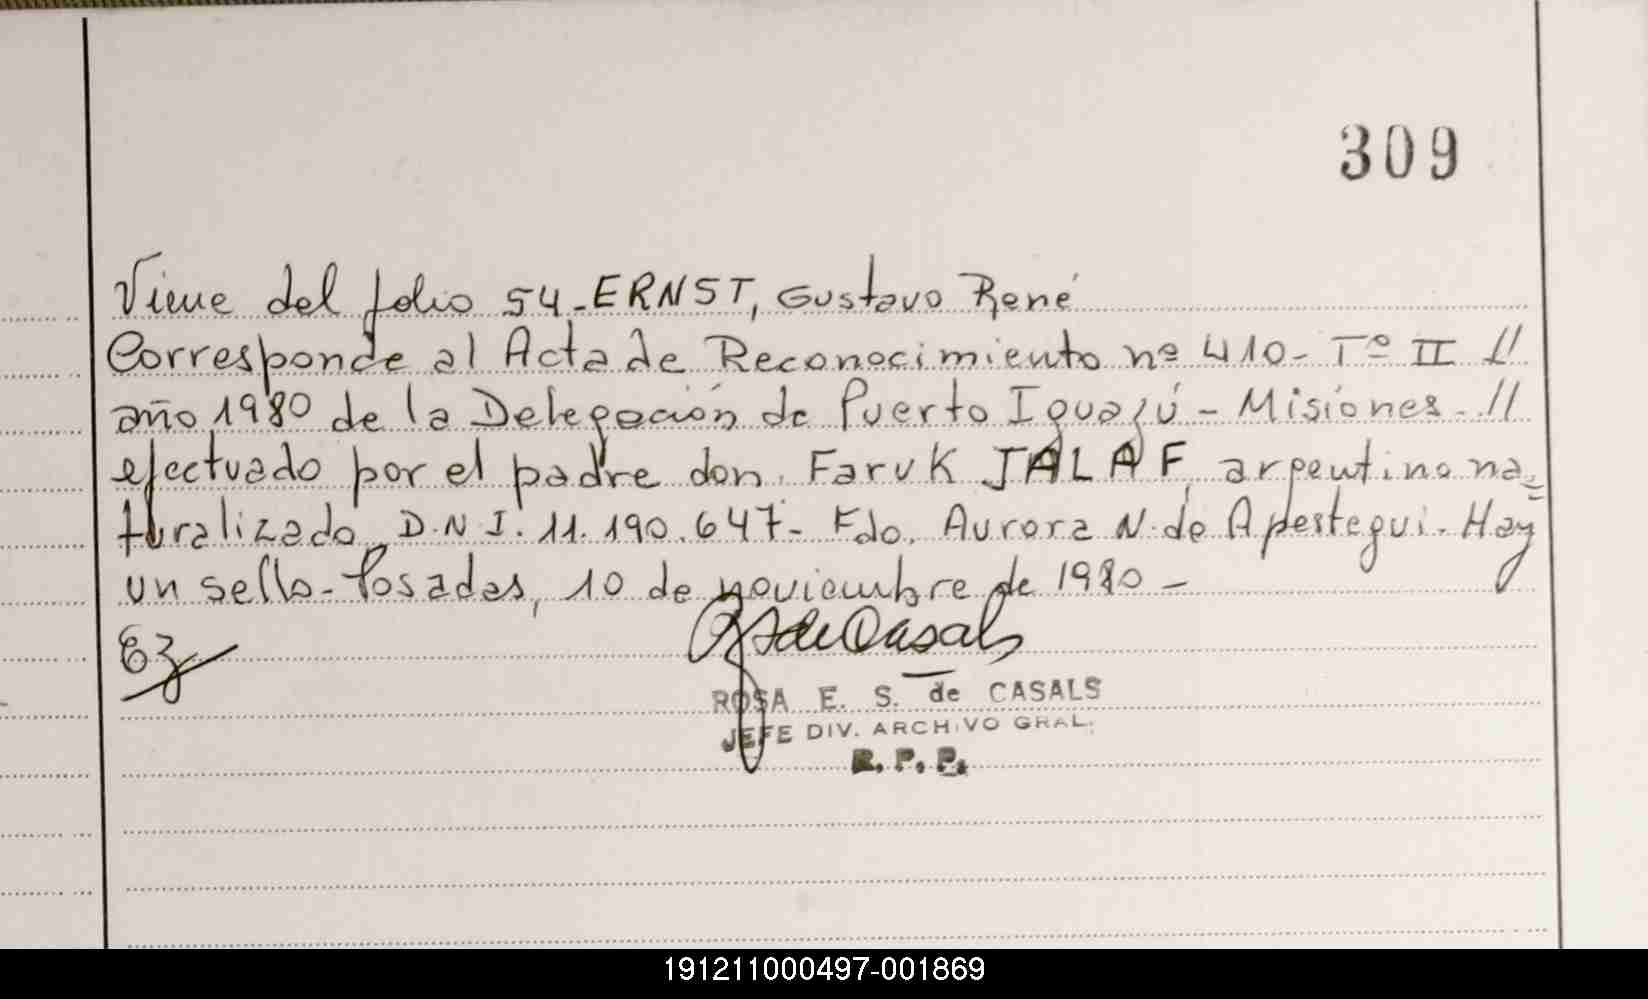 309
Viene del folio 54-ERNST, Gustavo René
Corresponde al Acta de Reconocimiento nº 410- Tº II //
año 1980 de la Delegación de Puerto Iguazú - Misiones. //
efectuado por el padre don Faruk JALAF, argentino na=
turalizado, D.N.I. 11.190.647- Fdo. Aurora N. de Apestegui. Hay
un sello- Posadas, 10 de noviembre de 1980 -
Ez
de Casals
ROSA E. S. de CASALS
JEFE DIV. ARCHIVO GRAL.
R. P. P.
191211000497-001869